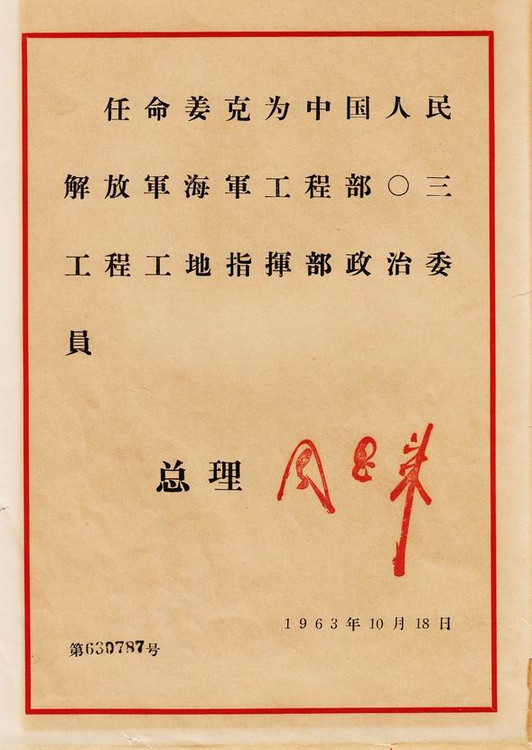 任命姜克为中国人民
解放軍海軍工程部〇三
工程工地指揮部政治委
員
总理 周恩来
1963年10月18日
第630787号